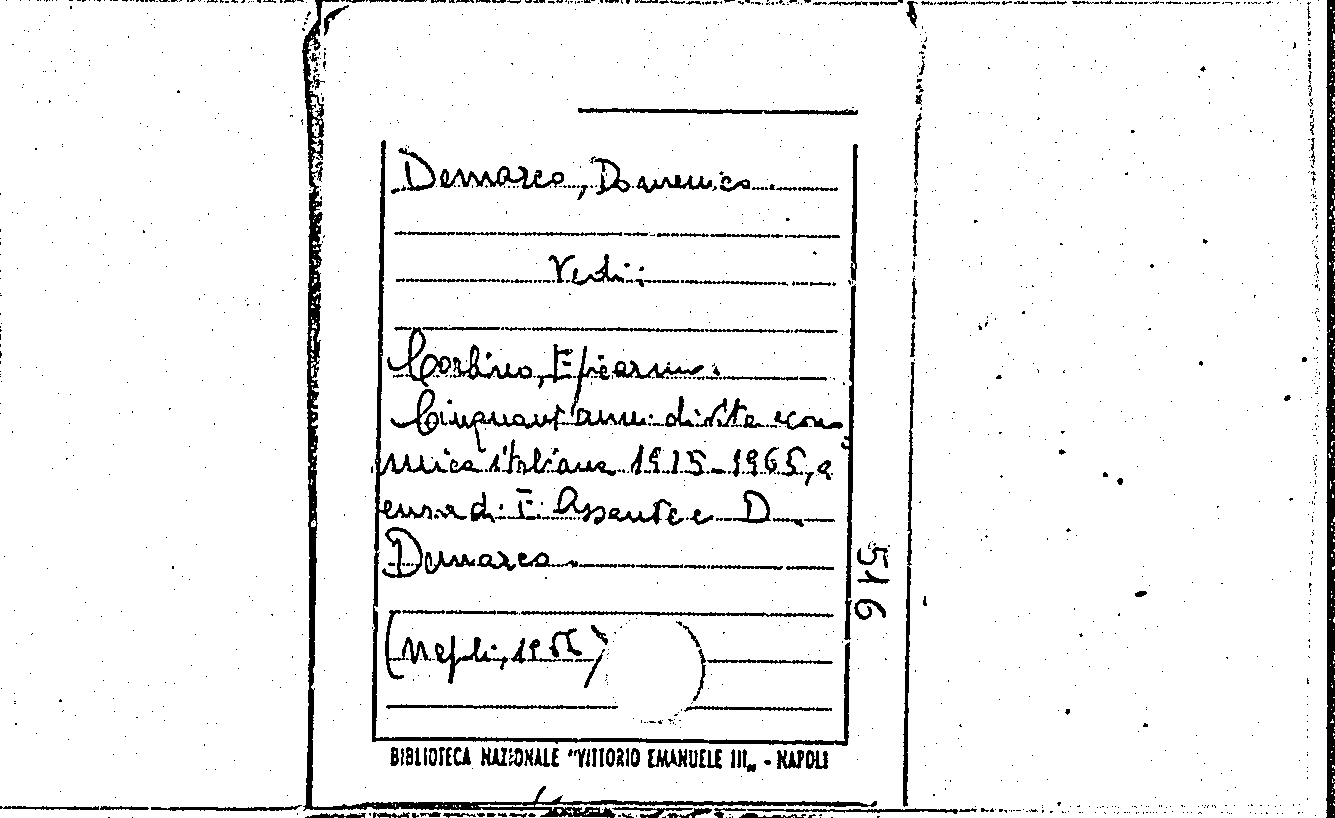 Demarco, Domenico.
Vedi:
Corbino, Epicarmo.
Cinquant'anni di vita econo
mica italiana 1915-1965, a
cura di F. Assante e D.
Demarco.
(Napoli, 1966)
516
BIBLIOTECA NAZIONALE "VITTORIO EMANUELE III„ - NAPOLI